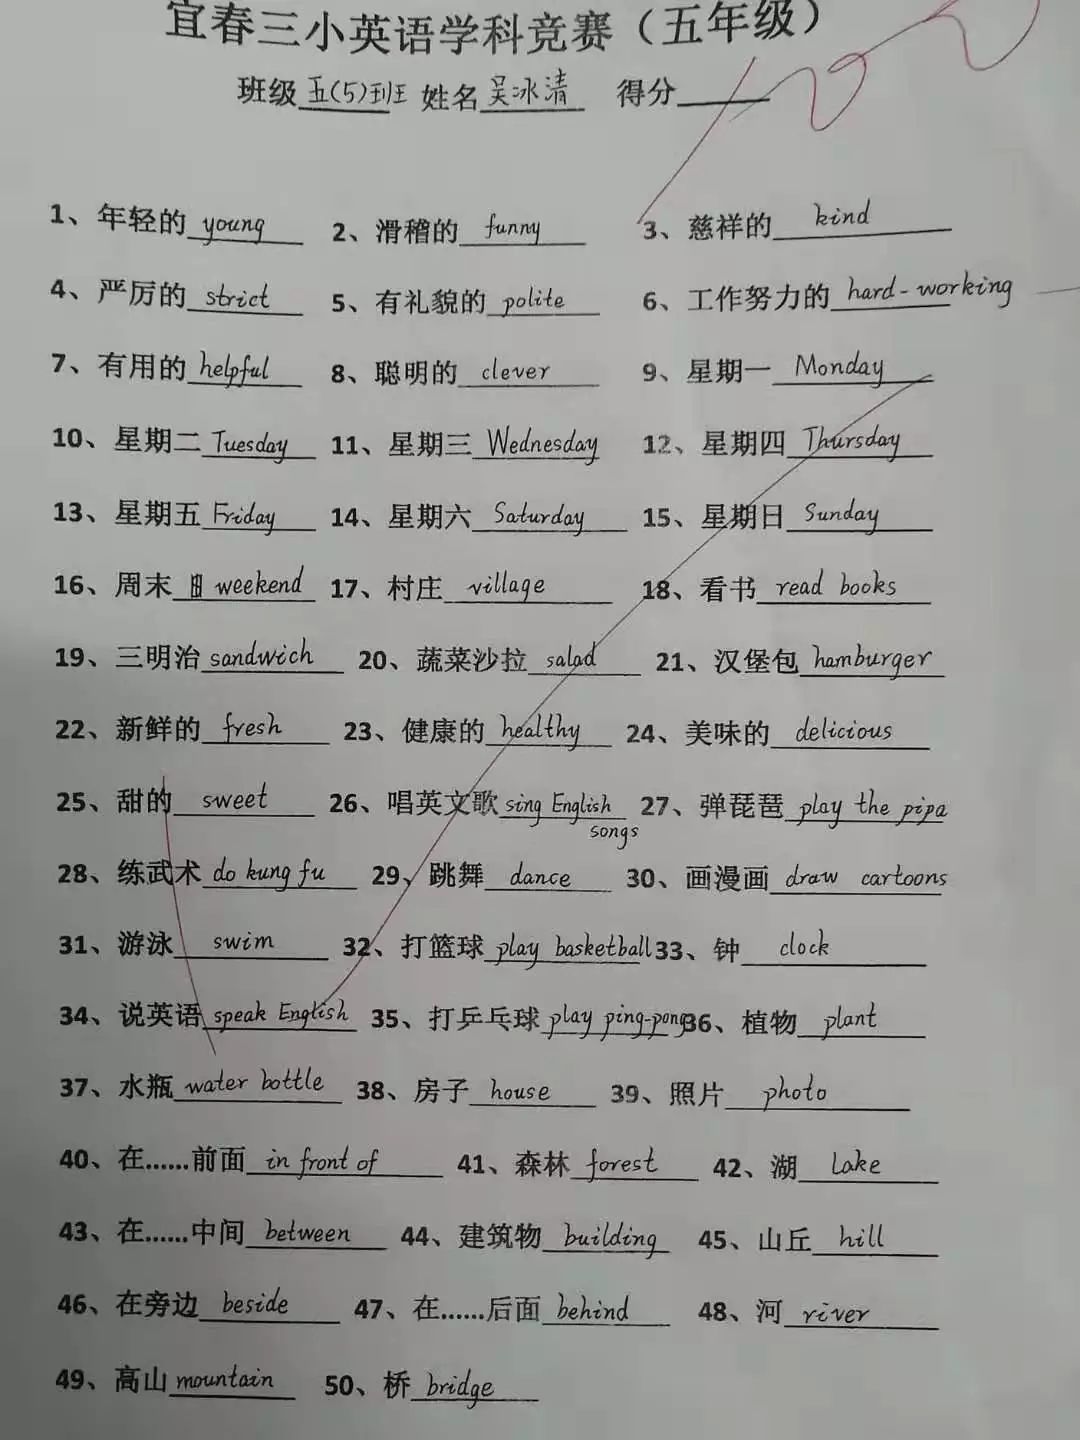 宜春三小英语学科竞赛（五年级）
班级五(5)班 姓名吴冰清 得分
1、年轻的 young 2、滑稽的 funny 3、慈祥的 kind
4、严厉的 strict 5、有礼貌的 polite 6、工作努力的 hard-working
7、有用的 helpful 8、聪明的 clever 9、星期一 Monday
10、星期二 Tuesday 11、星期三 Wednesday 12、星期四 Thursday
13、星期五 Friday 14、星期六 Saturday 15、星期日 Sunday
16、周末 weekend 17、村庄 village 18、看书 read books
19、三明治 sandwich 20、蔬菜沙拉 salad 21、汉堡包 hamburger
22、新鲜的 fresh 23、健康的 healthy 24、美味的 delicious
25、甜的 sweet 26、唱英文歌 sing English songs 27、弹琵琶 play the pipa
28、练武术 do kung fu 29、跳舞 dance 30、画漫画 draw cartoons
31、游泳 swim 32、打篮球 play basketball 33、钟 clock
34、说英语 speak English 35、打乒乓球 play ping-pong 36、植物 plant
37、水瓶 water bottle 38、房子 house 39、照片 photo
40、在......前面 in front of 41、森林 forest 42、湖 lake
43、在......中间 between 44、建筑物 building 45、山丘 hill
46、在旁边 beside 47、在......后面 behind 48、河 river
49、高山 mountain 50、桥 bridge